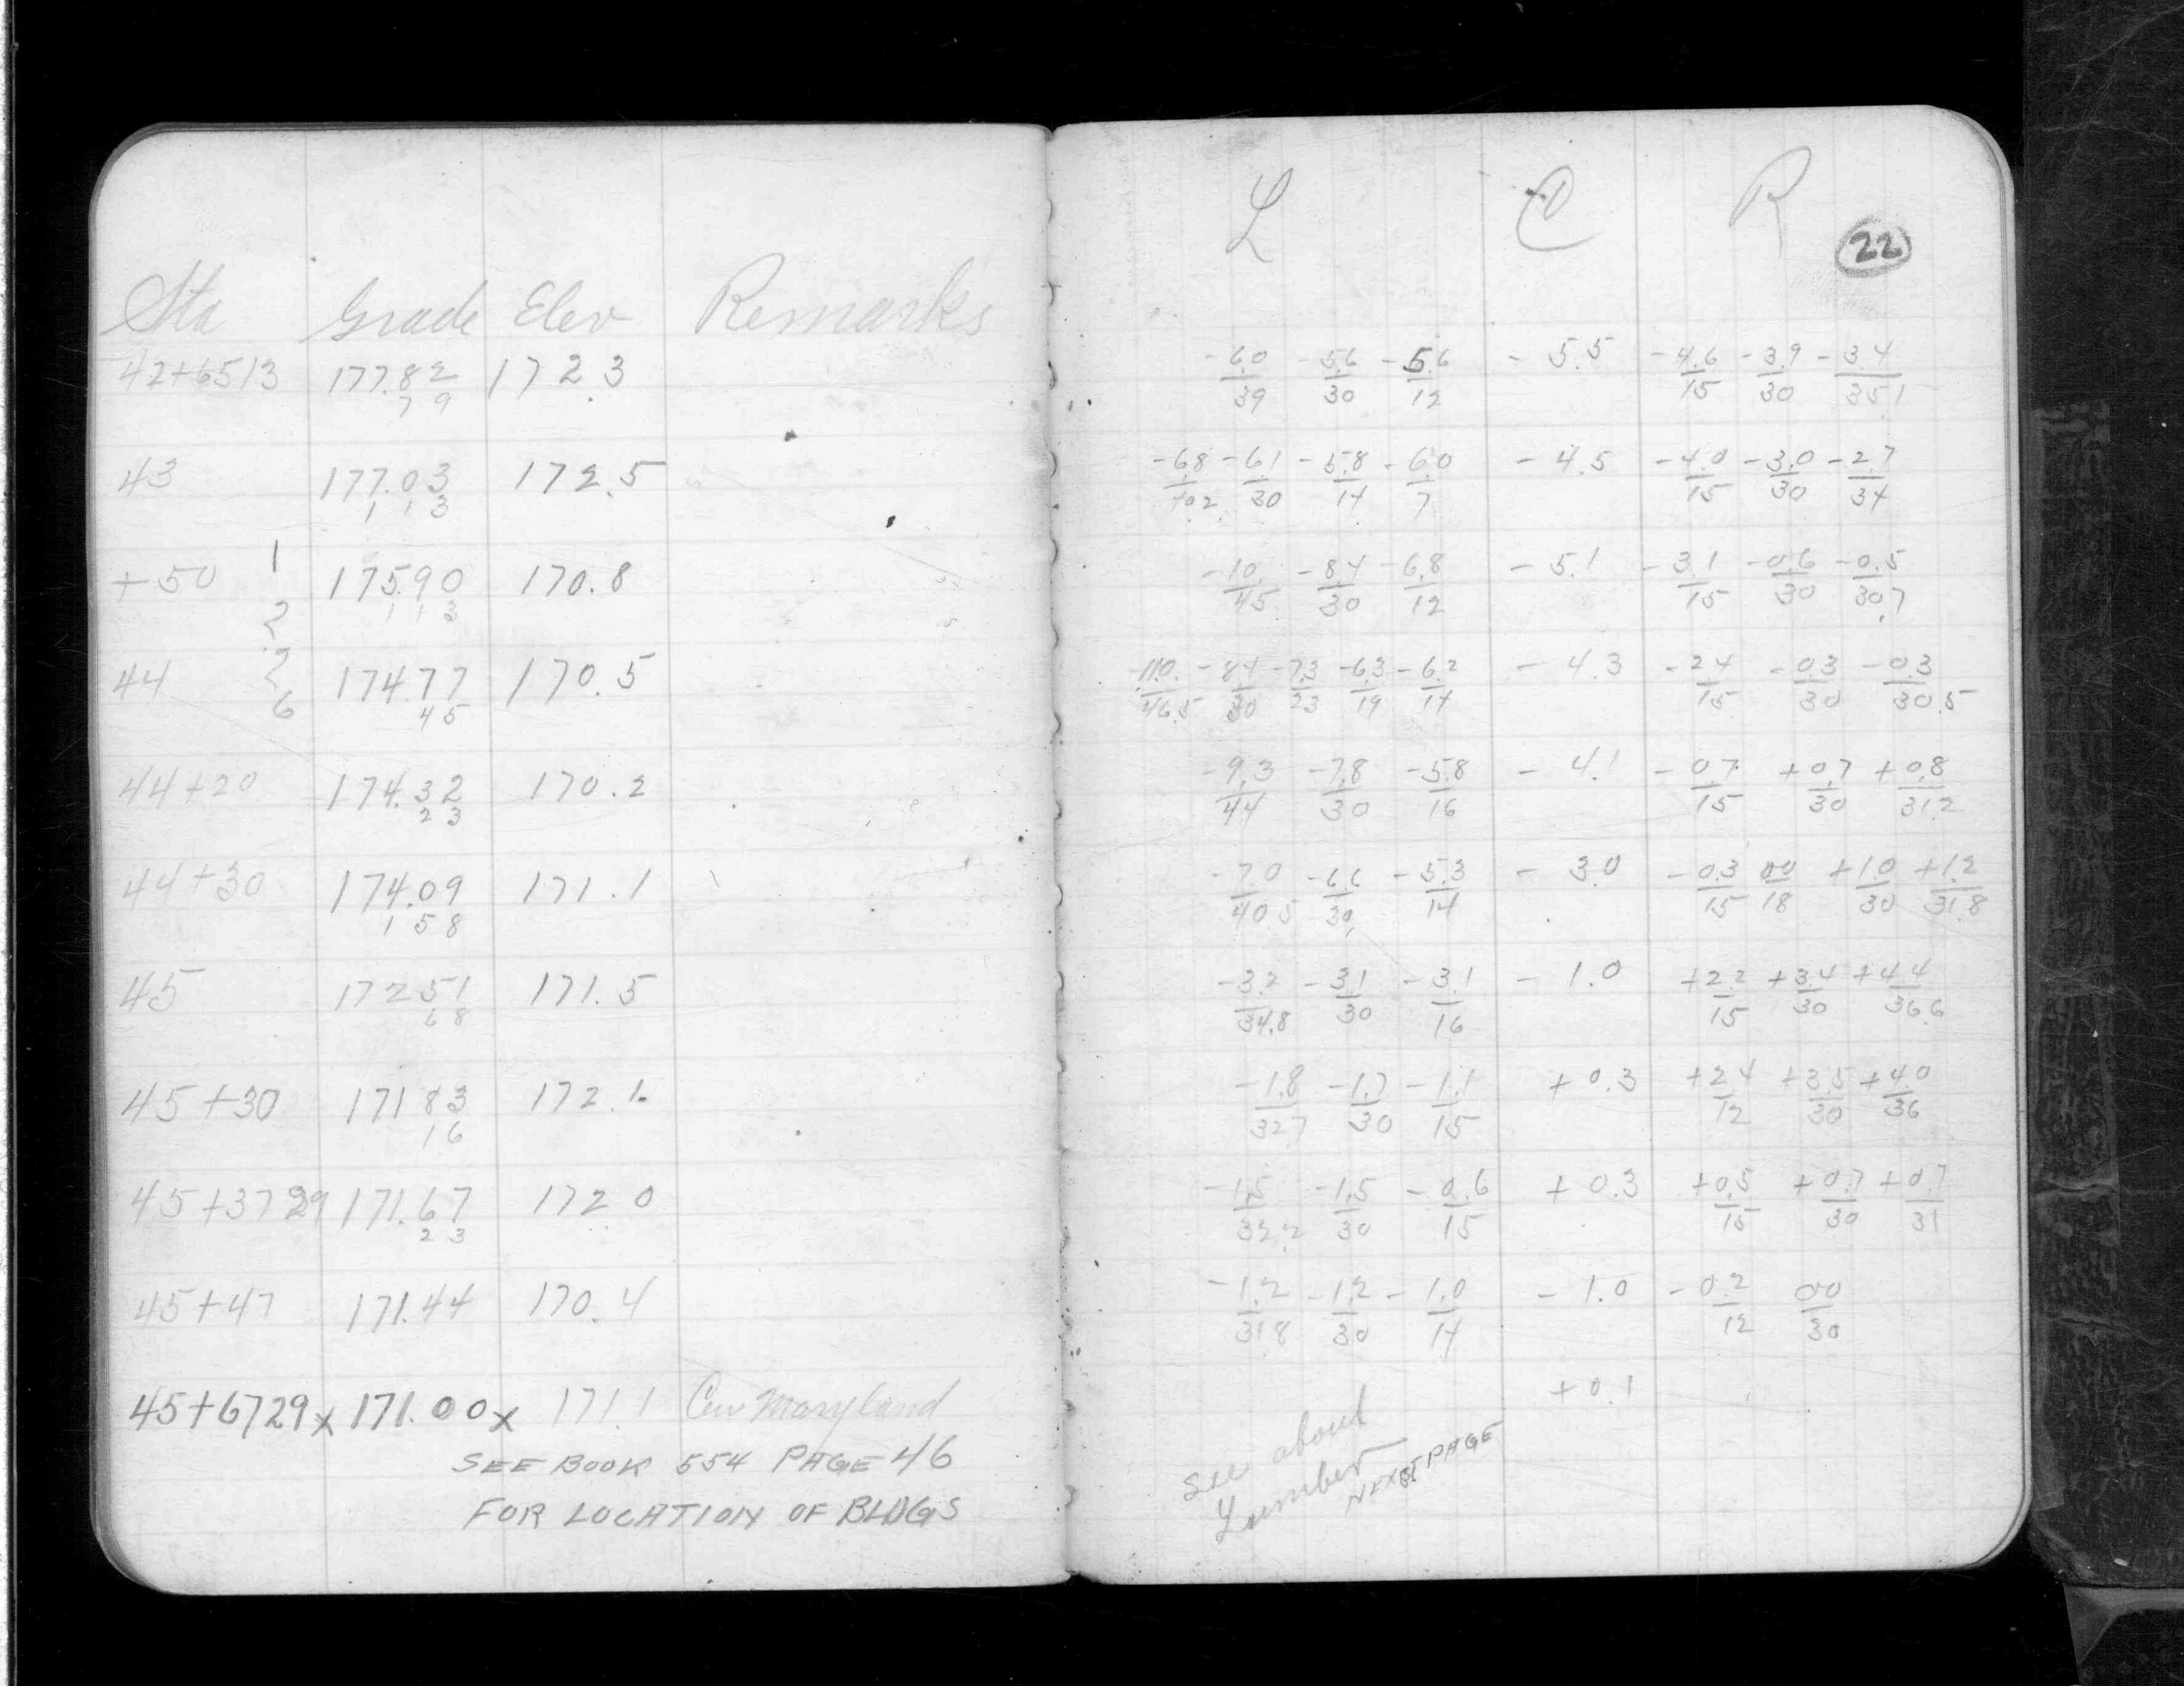 Sta Grade Elev Remarks
42+6513 177.82 172.3
79
43 177.03 172.5
113
+50 1 175.90 170.8
2 113
44 2 174.77 170.5
6 45
44+20 174.32 170.2
23
44+30 174.09 171.1
158
45 172 51 171.5
68
45+30 171 83 172.1
16
45+37 29 171.67 172 0
23
45+47 171.44 170.4
45+6729 x 171.00 x 171.1 Cen Maryland
SEE BOOK 554 PAGE 46
FOR LOCATION OF BLDGS
L C R
22
-6.0 -5.6 -5.6 - 5.5 -4.6 -3.9 -3.4
39 30 12 15 30 35.1
-6.8 -6.1 -5.8 -6.0 - 4.5 -4.0 -3.0 -2.7
40.2 30 14 7 15 30 34
-10. -8.4 -6.8 - 5.1 -3.1 -0.6 -0.5
45 30 12 15 30 30.7
-11.0 -8.4 -7.3 -6.3 -6.2 - 4.3 -2.4 -0.3 -0.3
46.5 30 23 19 14 15 30 30.5
-9.3 -7.8 -5.8 - 4.1 -0.7 +0.7 +0.8
44 30 16 15 30 31.2
-7.0 -6.6 -5.3 - 3.0 -0.3 0.0 +1.0 +1.2
40.5 30 14 15 18 30 31.8
-3.2 -3.1 -3.1 - 1.0 +2.2 +3.4 +4.4
34.8 30 16 15 30 36.6
-1.8 -1.7 -1.1 + 0.3 +2.4 +3.5 +4.0
32.7 30 15 12 30 36
-1.5 -1.5 -0.6 + 0.3 +0.5 +0.7 +0.7
32.2 30 15 15 30 31
-1.2 -1.2 -1.0 - 1.0 -0.2 0.0
31.8 30 14 12 30
+ 0.1
see about
Lumber
NEXT PAGE